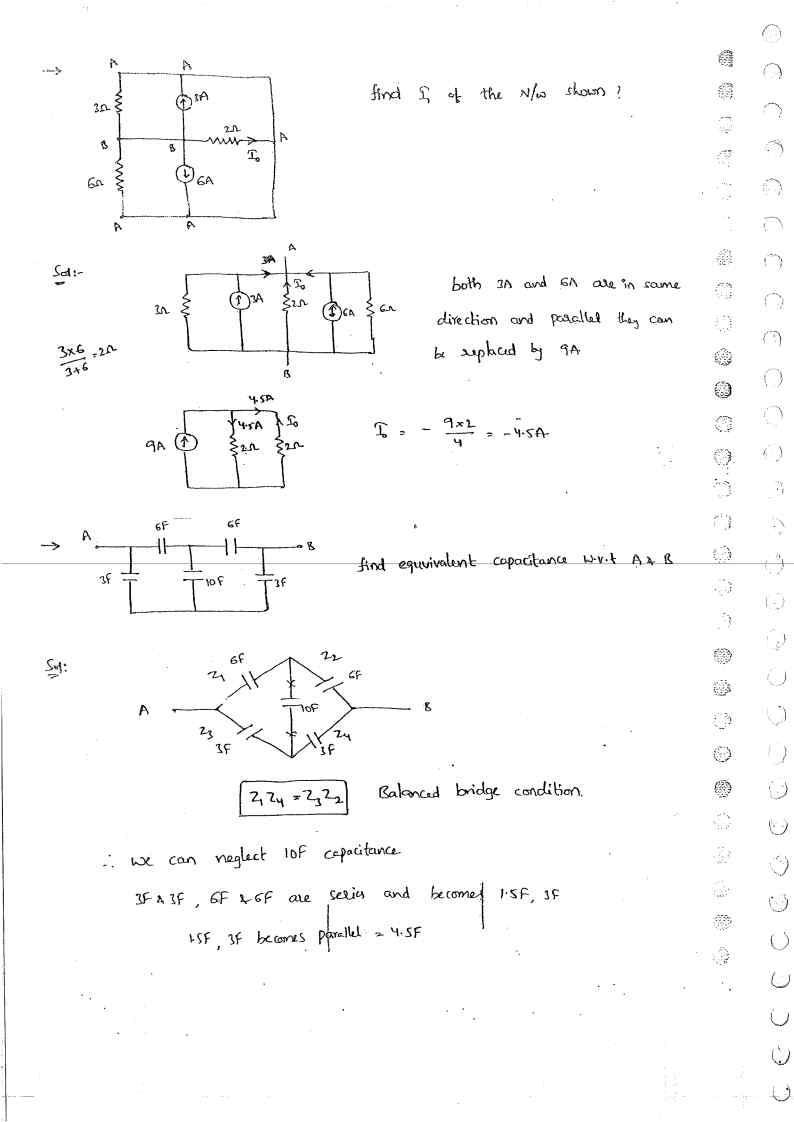 →
A A
3Ω 3A
find I₁ of the N/W shown?
2Ω
B B A
I₀
6Ω 6A
A A
Sol:-
A
3A
3Ω 3A I₀ 2Ω 6A 6Ω
B
both 3A and 6A are in same
direction and parallel they can
be replaced by 9A
3×6/3+6 = 2Ω
4.5A
9A 4.5A I₀
2Ω 2Ω
I₀ = - 9×2/4 = -4.5A
→ A 6F 6F B
3F 10F 3F
find equuivalent capacitance w.r.t A & B
Sol:
Z₁ 6F Z₂ 6F
A 10F B
Z₃ 3F 3F Z₄
Z₁Z₄ = Z₃Z₂ Balanced bridge condition.
∴ we can neglect 10F capacitance
3F & 3F, 6F & 6F are series and becomes 1.5F, 3F
1.5F, 3F becomes parallel = 4.5F